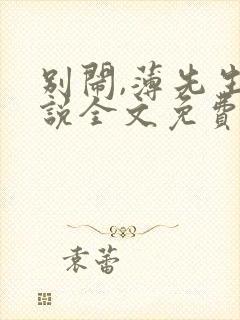 别闹,薄先生
说全文免费
袁蕾